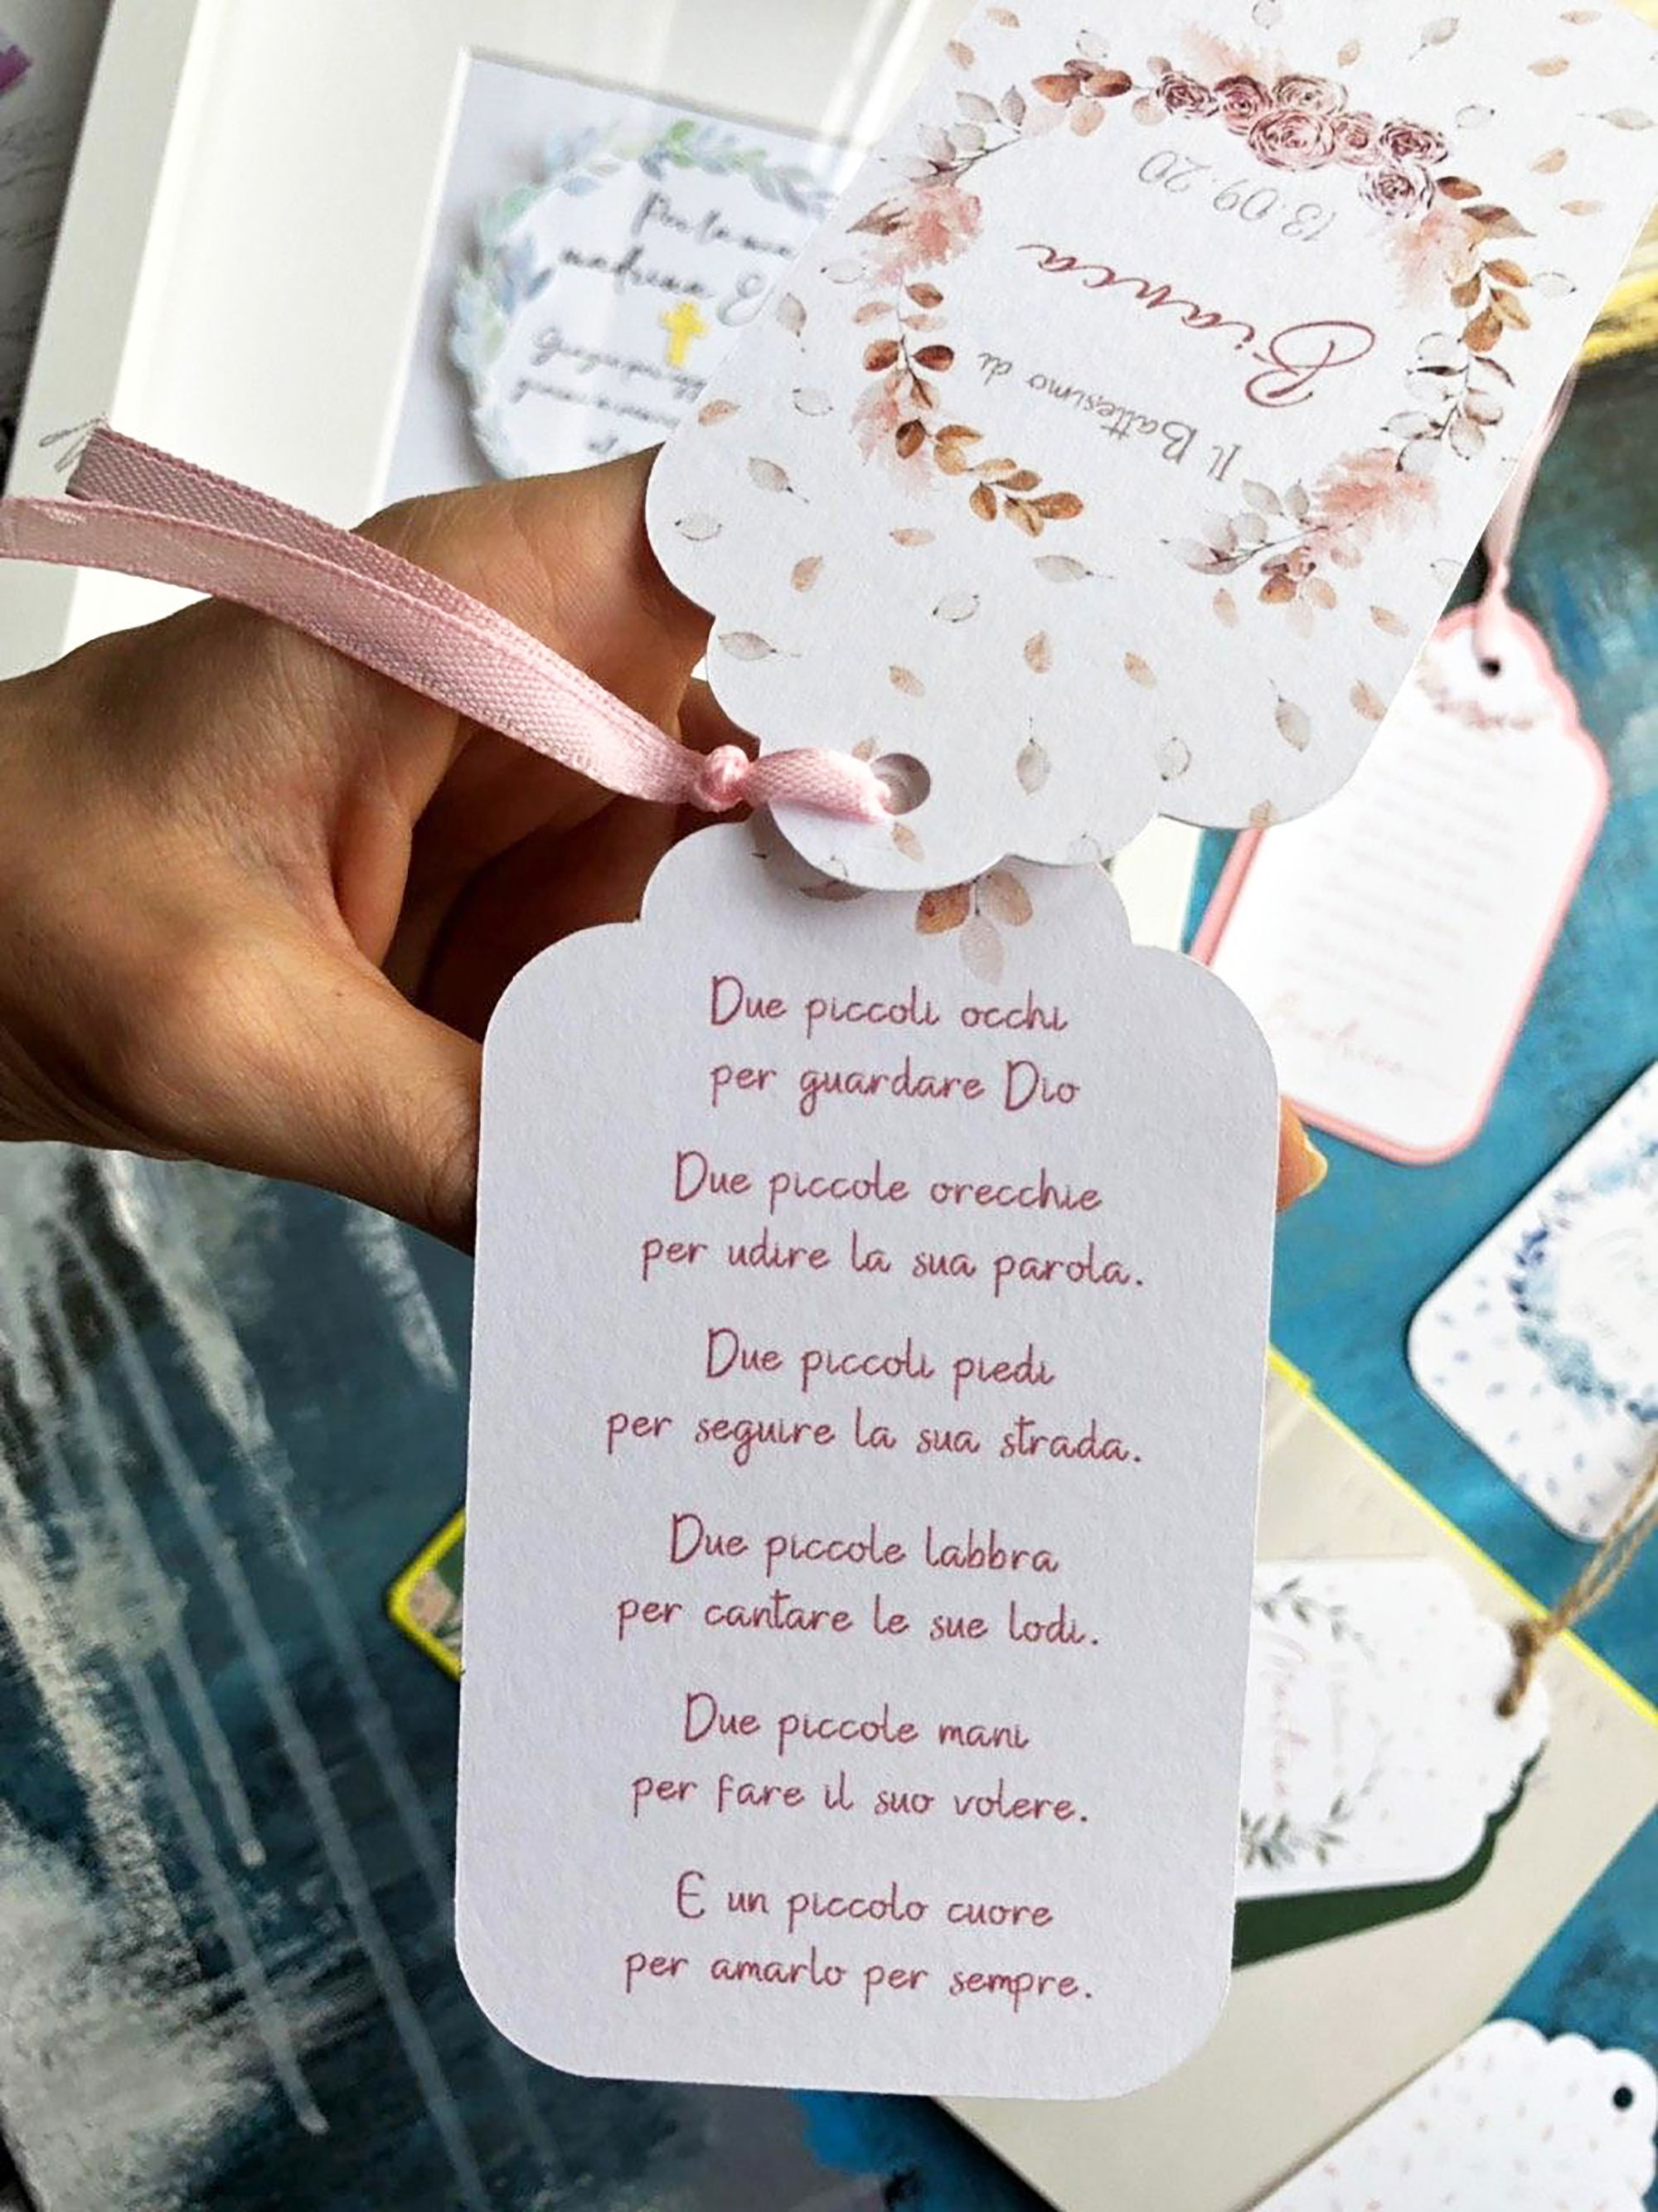 Il Battesimo di
Bianca
13.09.20
Due piccoli occhi
per guardare Dio
Due piccole orecchie
per udire la sua parola.
Due piccoli piedi
per seguire la sua strada.
Due piccole labbra
per cantare le sue lodi.
Due piccole mani
per fare il suo volere.
E un piccolo cuore
per amarlo per sempre.
Per la mia
madrina